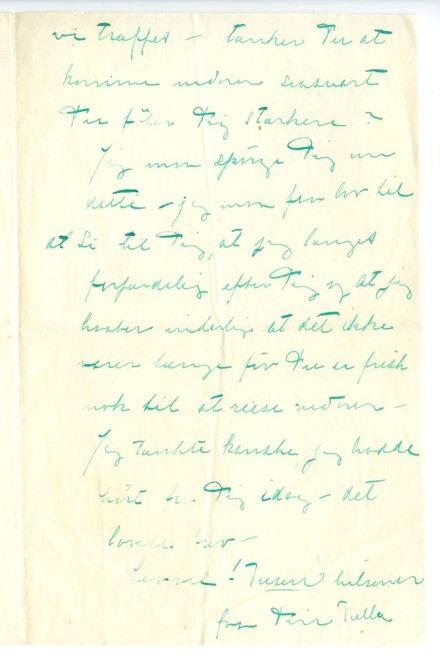 vi traffes – tænker Du at
komme nedover saasnart
Du føler Dig stærkere ?
Jeg maa spørge Dig om
dette – jeg maa faa lov til
at si til Dig, at jeg længes
forfærdelig efter Dig og at jeg
haaber inderlig at det ikke
varer længe før Du er frisk
nok til at reise nedover –
Jeg tænkte kanske jeg hadde
hørt fra Dig idag – det
lovede brev –
! Tusen hilsener
fra Din Tulla